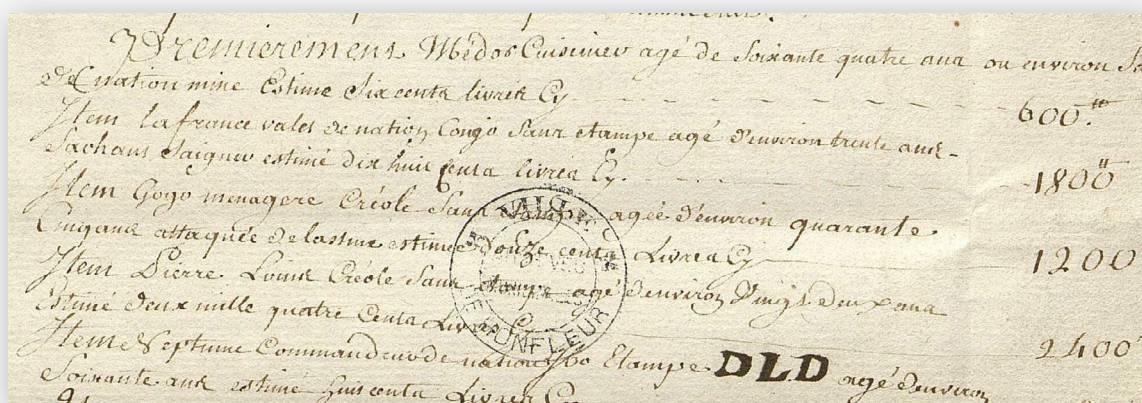 Premierement Médor Cuisinier agé de Soixante quatre ans ou environ
de nation mine Estimé Six cents livres Cy 600.₶
Item lafrance valet de nation Congo Sans étampe agé d'environ trente ans
Sachant Saigner estimé dix huit cents livres Cy. 1800₶
Item Gogo menagere Créole Sans étampe agée d'environ quarante
Cinq ans attaquée de lastme estimée douze cents Livres Cy 1200
Item Pierre Louis Créole Sans étampe agé d'environ Vingt deux ans
Estimé deux mille quatre Cents Livres Cy 2400
Item Neptune Commandeur de nation Ybo Etampé DLD agé d'environ
Soixante ans estimé huit cents Livres Cy
HONFLEUR